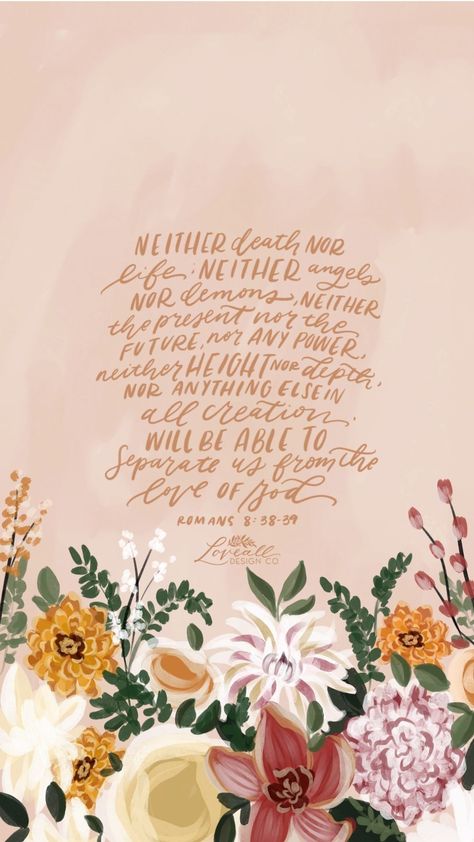 NEITHER death NOR
life, NEITHER angels
NOR demons, NEITHER
the present nor the
FUTURE, nor ANY POWER,
neither HEIGHT NOR depth,
NOR ANYTHING ELSE IN
all creation,
WILL BE ABLE TO
Separate us from the
love OF God
ROMANS 8:38-39
Loveall
DESIGN CO